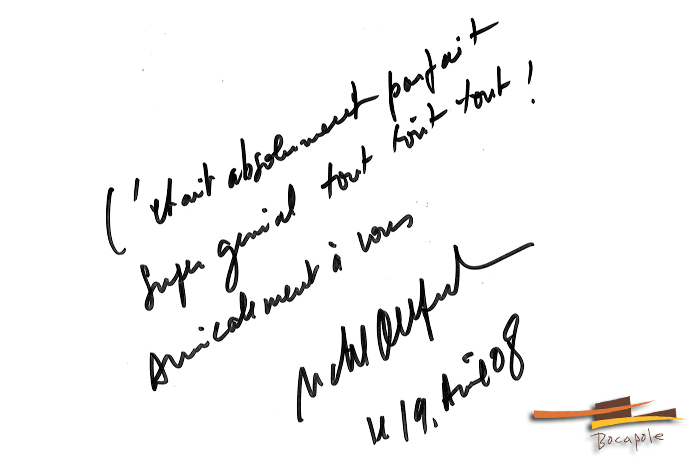 C'était absolument parfait
Super genial tout tout tout !
Amicalement à vous
le 19. Avril 08
Bocapole